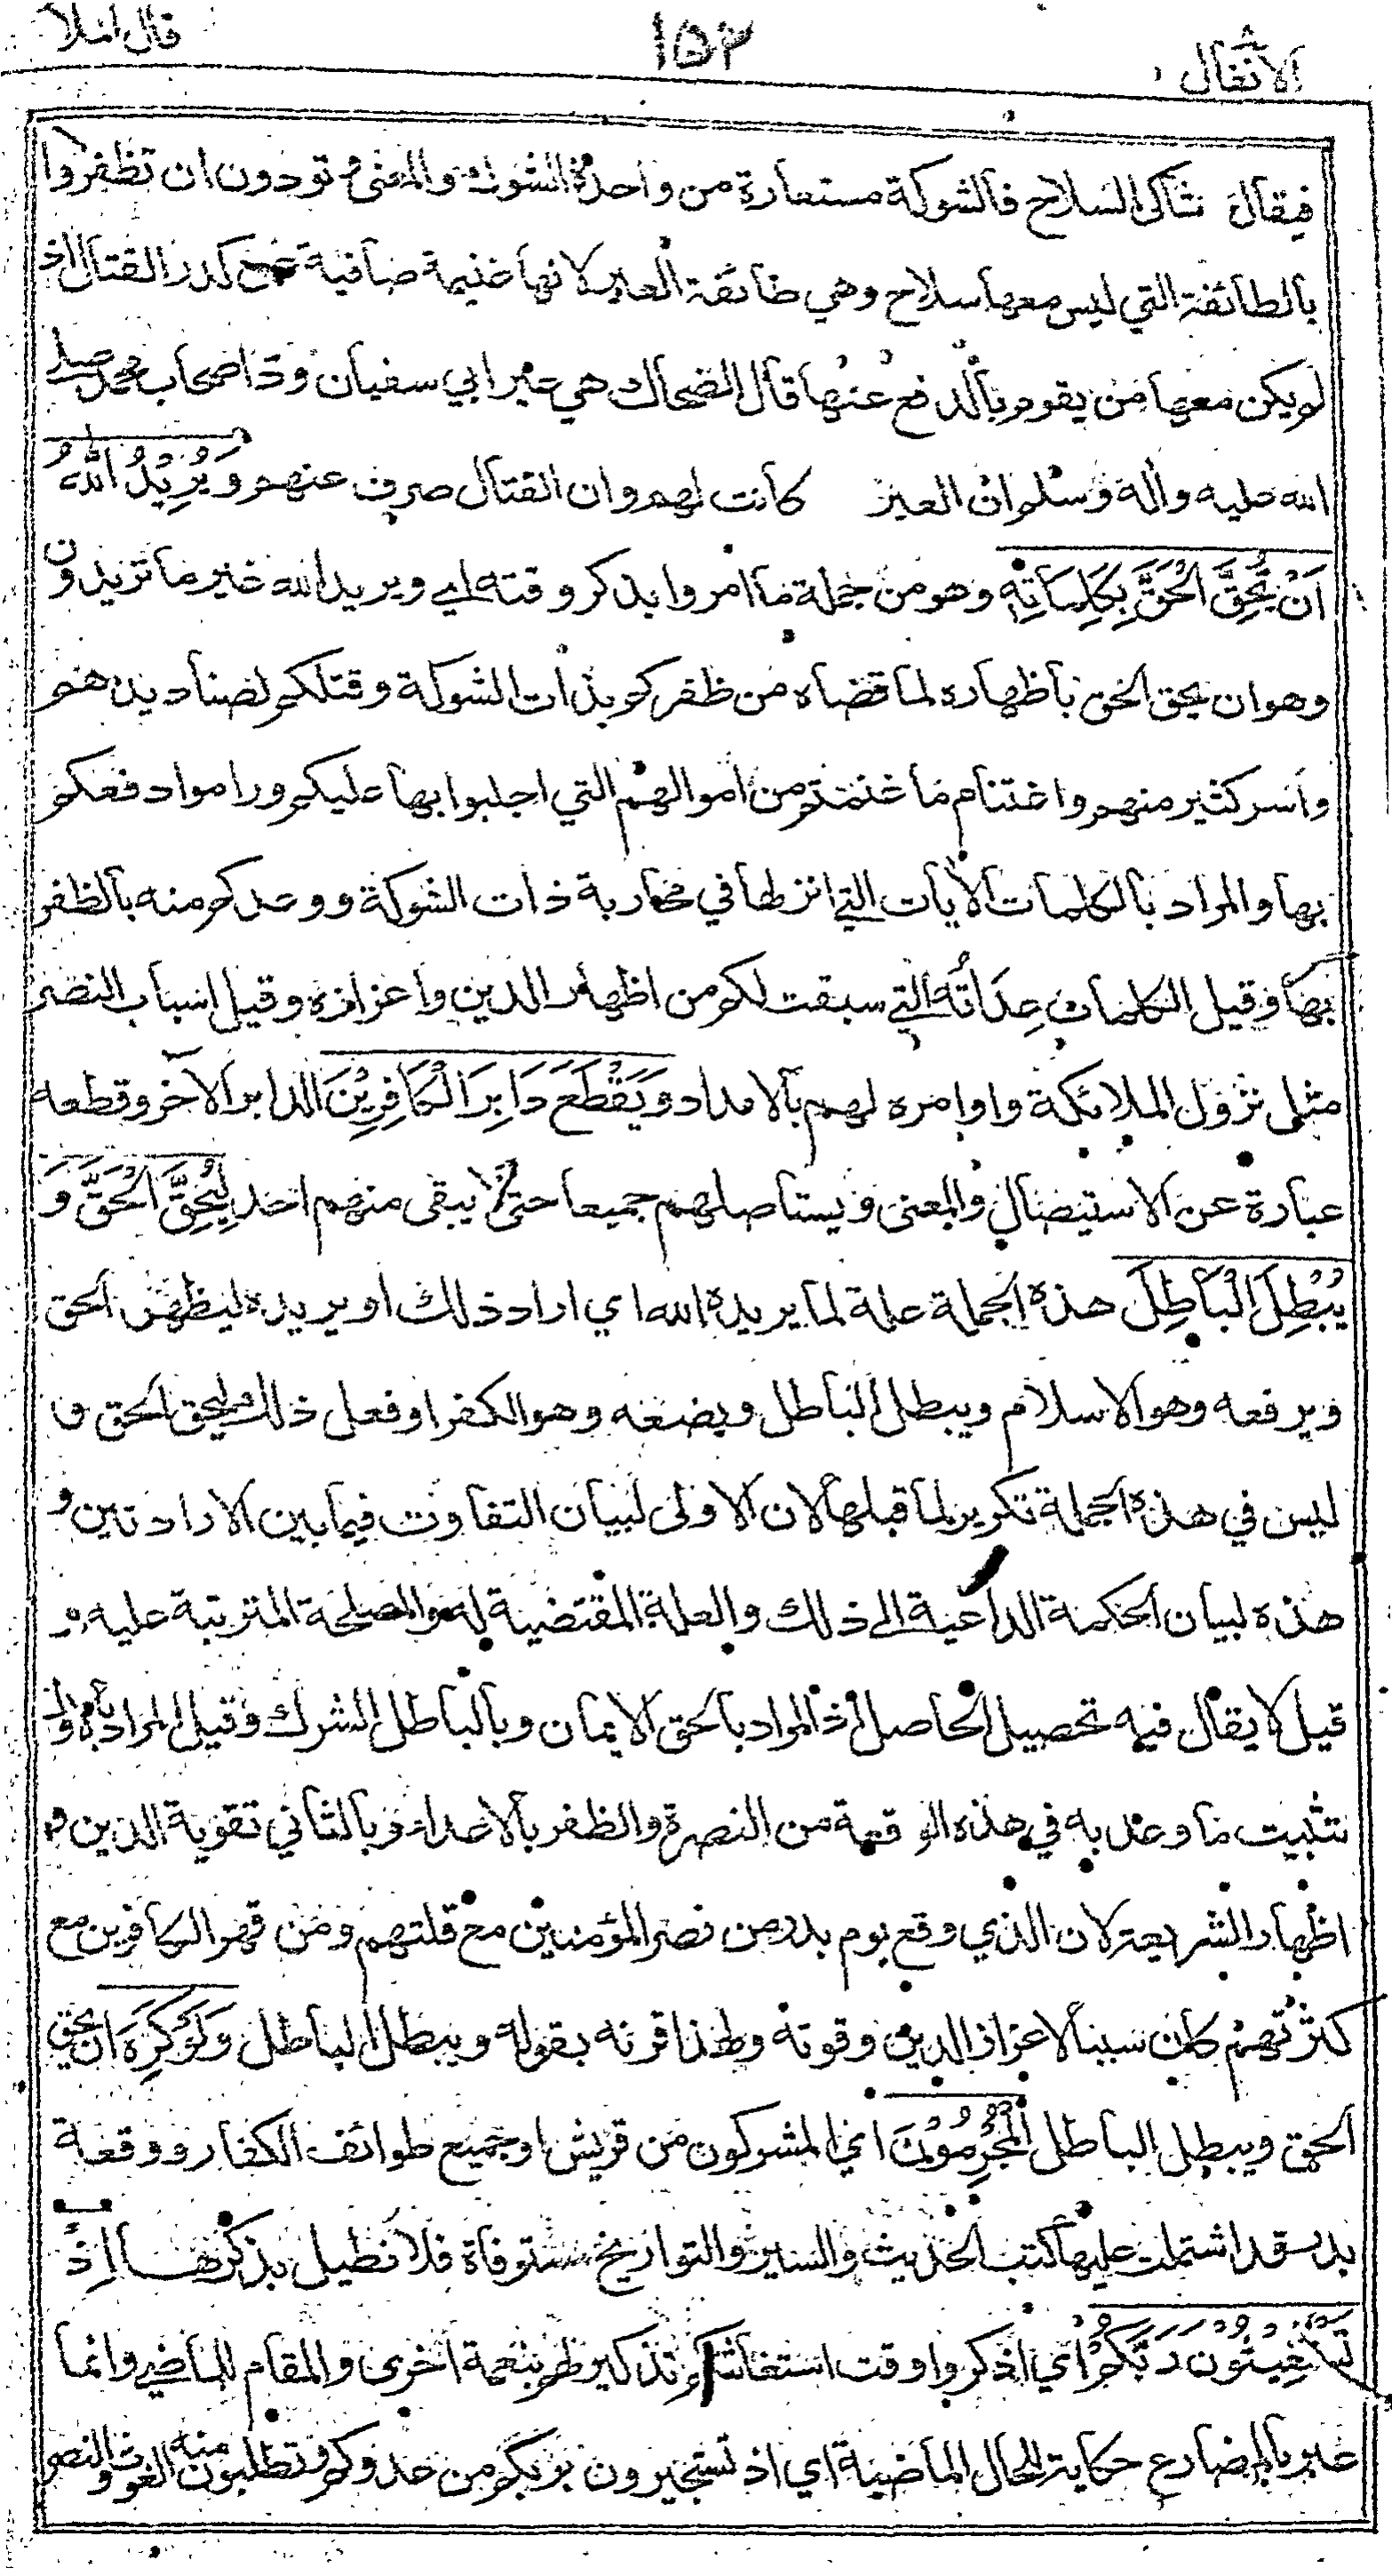 الانفال
١٥٢
قال الملأ
فيقال شاكى السلاح فالشوكة مستعارة من واحدة الشوك والمعنى تودون ان تظفروا
بالطائفة التي ليس معها سلاح وهي طائفة العير لانها غنيمة صافية عن كدر القتال اذ
لم يكن معها من يقوم بالدفع عنها قال الضحاك هي عير ابي سفيان ود اصحاب محمد صلى
الله عليه واله وسلم ان العير كانت لهم وان القتال صرف عنهم وَيُرِيْدُ اللّٰهُ
اَنْ يُّحِقَّ الْحَقَّ بِكَلِمَاتِهٖ وهو من جملة ما امروا بذكر وقته اي ويريد الله غير ما تريدون
وهو ان يحق الحق باظهاره لما قضاه من ظفركم بذات الشوكة وقتلكم لصناديدهم
واسر كثير منهم واغتنام ما غنمتم من اموالهم التي اجلبوا بها عليكم وراموا دفعكم
بها والمراد بالكلمات الايات التي انزلها في محاربة ذات الشوكة ووعدكم منه بالظفر
بها وقيل الكلمات عِدَاتُه التي سبقت لكم من اظهار الدين واعزازه وقيل اسباب النصر
مثل نزول الملائكة واوامره لهم بالامداد وَيَقْطَعَ دَابِرَ الْكَافِرِيْنَ الدابر الآخر وقطعه
عبارة عن الاستيصال والمعنى ويستاصلهم جميعا حتى لا يبقى منهم احد لِيُحِقَّ الْحَقَّ وَ
يُبْطِلَ الْبَاطِلَ هذه الجملة علة لما يريده الله اي اراد ذلك او يريده ليظهر الحق
ويرفعه وهو الاسلام ويبطل الباطل ويضعه وهو الكفر او فعل ذلك ليحق الحق و
ليس في هذه الجملة تكرير لما قبلها لان الاولى لبيان التفاوت فيما بين الارادتين و
هذه لبيان الحكمة الداعية الى ذلك والعلة المقتضية له والمصلحة المترتبة عليه و
قيل لا يقال فيه تحصيل الحاصل اذ المراد بالحق الايمان وبالباطل الشرك وقيل المراد بالاول
تثبيت ما وعد به في هذه الوقعة من النصرة والظفر بالاعداء وبالثاني تقوية الدين و
اظهار الشريعة لان الذي وقع يوم بدر من نصر المؤمنين مع قلتهم ومن قهر الكافرين مع
كثرتهم كان سببا لاعزاز الدين وقوته ولهذا قرنه بقوله ويبطل الباطل وَلَوْ كَرِهَ ان يحق
الحق ويبطل الباطل الْمُجْرِمُوْنَ اي المشركون من قريش او جميع طوائف الكفار ووقعة
بدر قد اشتملت عليها كتب الحديث والسير والتواريخ مستوفاة فلا نطيل بذكرها اِذْ
تَسْتَغِيْثُوْنَ رَبَّكُمْ اي اذكروا وقت استغاثتكم تذكير لهم بنعمة اخرى والمقام للماضي وانما
عبر بالمضارع حكاية للحال الماضية اي اذ تستجيرون بربكم من عدوكم وتطلبون منه الغوث والنصر